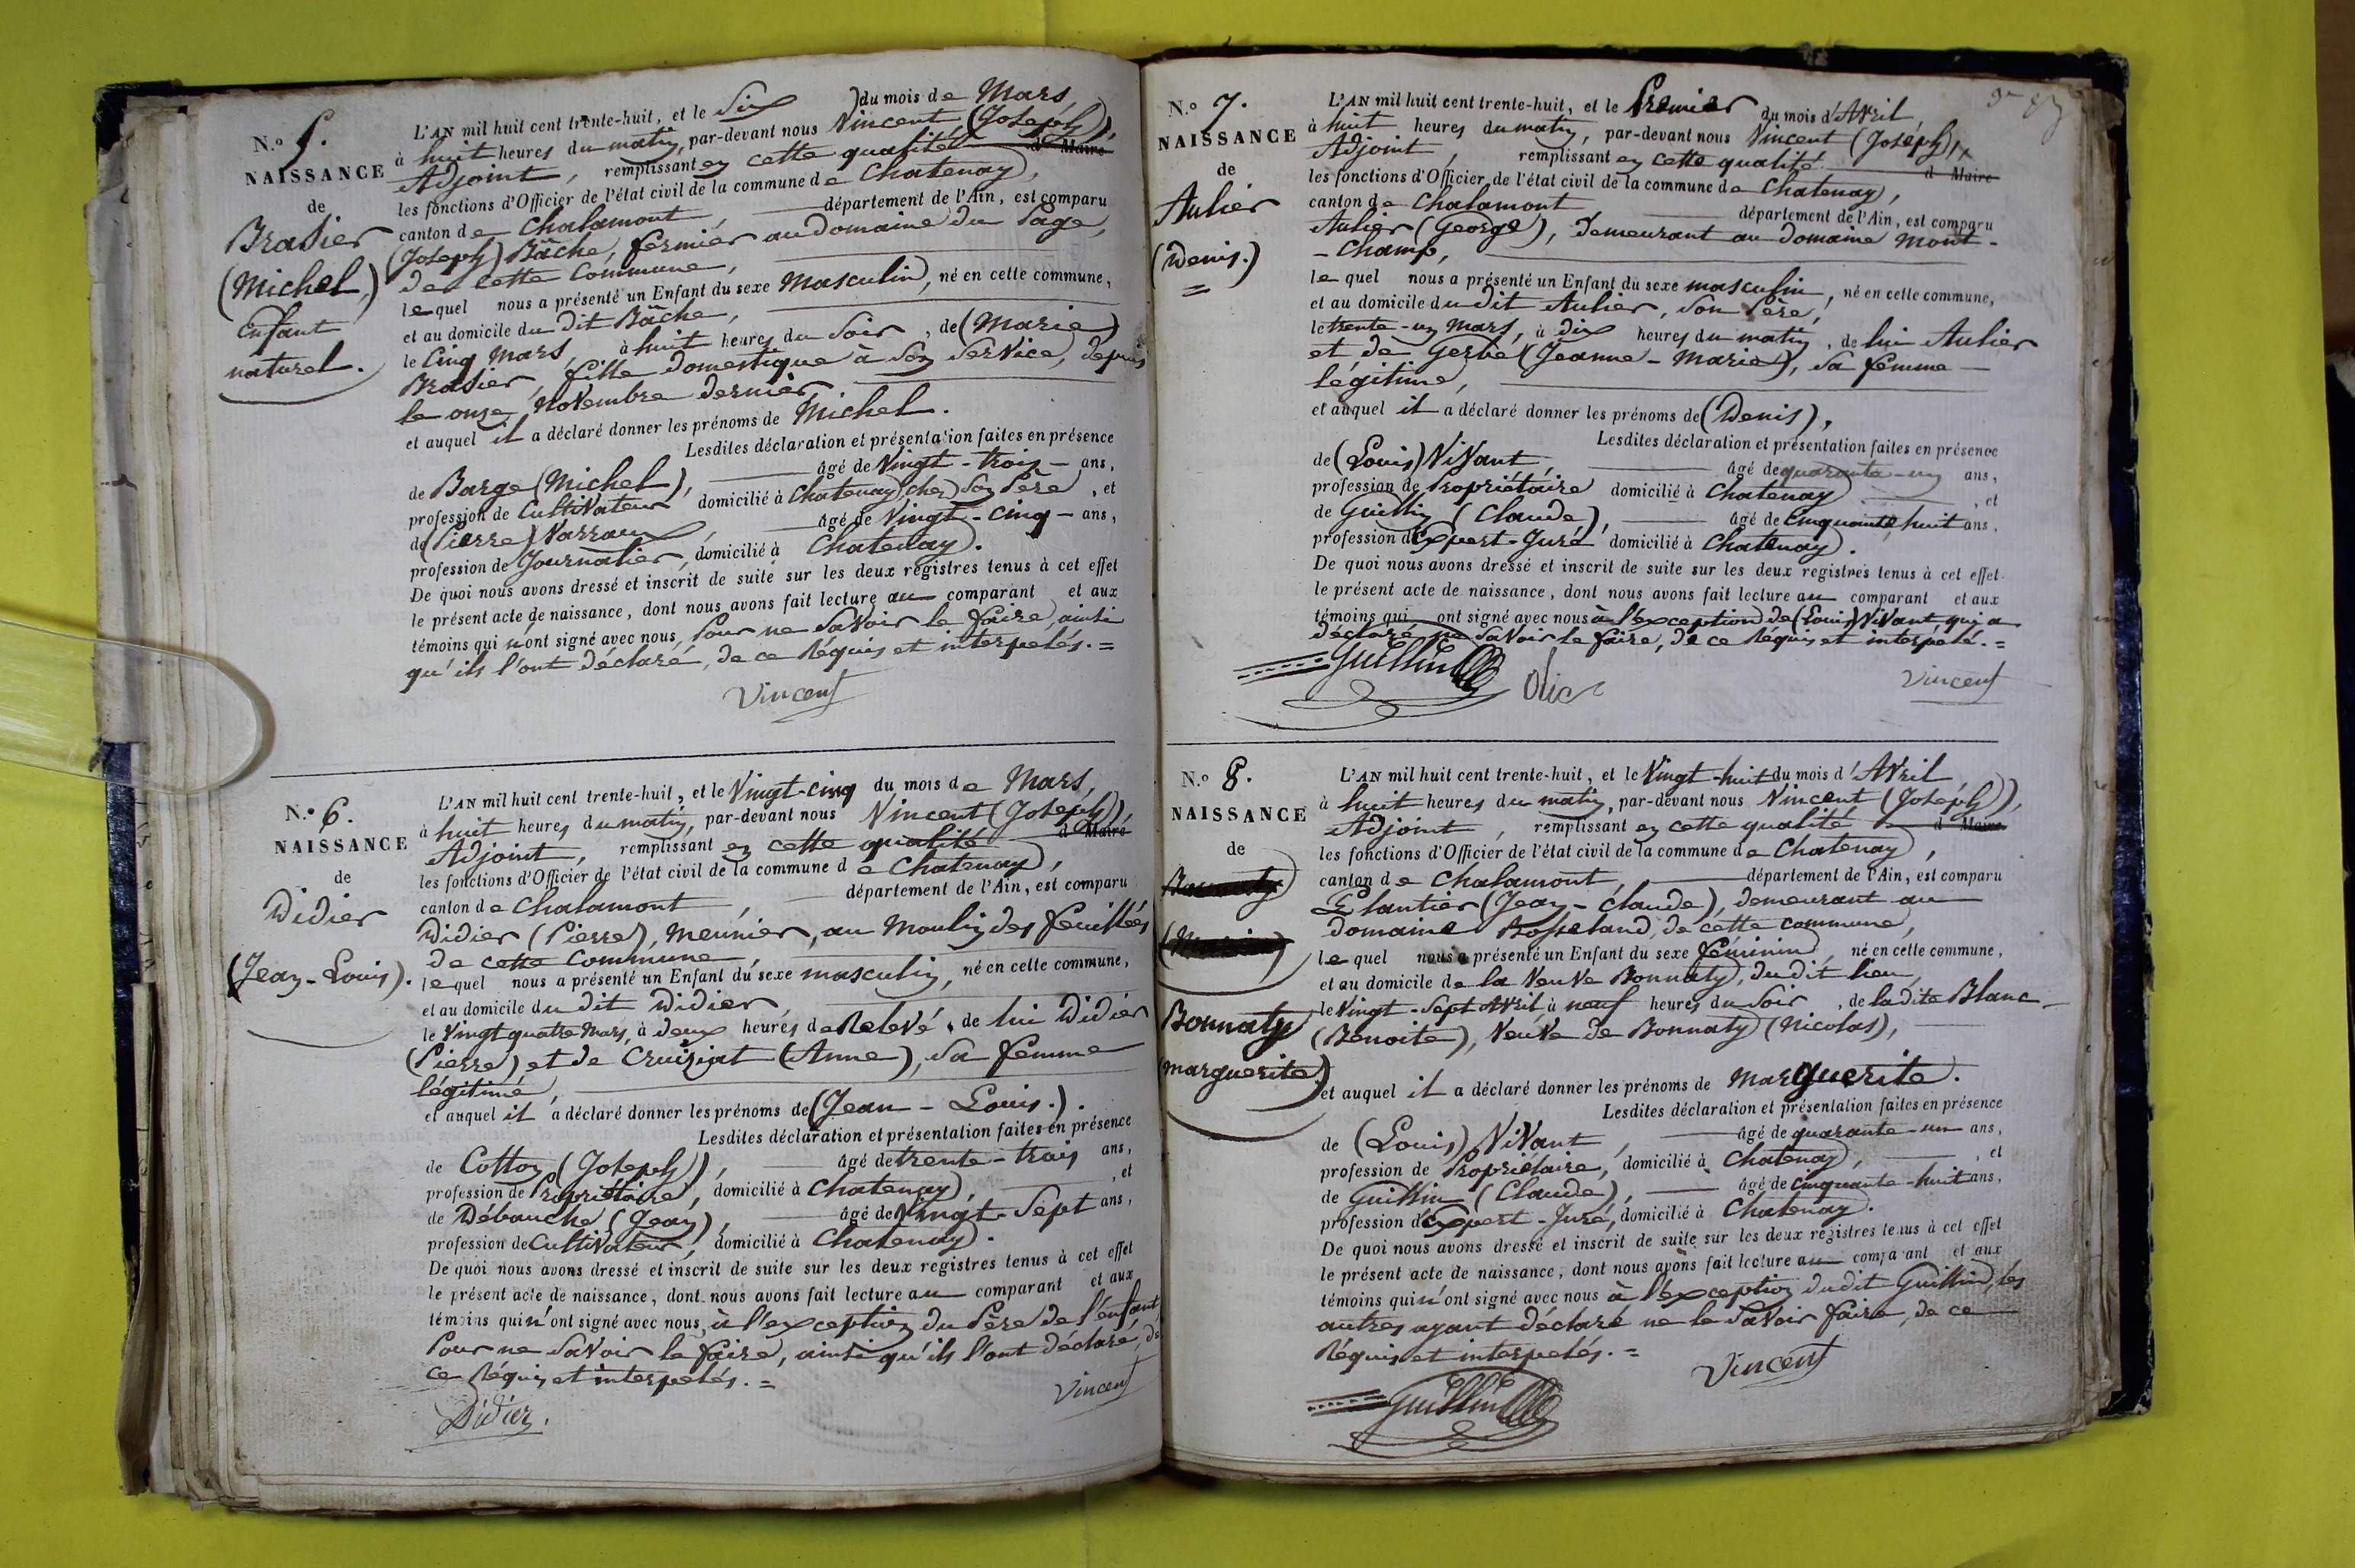 N.º 5.
NAISSANCE
de
Brasier
(Michel,)
Enfant
naturel.
L'AN mil huit cent trente-huit, et le Six du mois de Mars,
à huit heures du matin, par-devant nous Vincent (Joseph),
Adjoint, remplissant en cette qualité d Maire
les fonctions d'Officier de l'état civil de la commune de Chatenay,
canton de Chalamont, département de l'Ain, est comparu
(Joseph) Bâche, fermier au domaine du Sage,
de cette Commune,
lequel nous a présenté un Enfant du sexe Masculin, né en cette commune,
et au domicile du dit Bâche,
le Cinq Mars, à huit heures du Soir, de (Marie)
Brasier, fille domestique à son service, depuis
le onze Novembre dernier,
et auquel il a déclaré donner les prénoms de Michel.
Lesdites déclaration et présentation faites en présence
de Barge (Michel), âgé de Vingt-trois ans,
profession de Cultivateur domicilié à Chatenay chez son Père, et
de (Pierre) Varraux, âgé de Vingt-cinq ans,
profession de Journalier, domicilié à Chatenay.
De quoi nous avons dressé et inscrit de suite sur les deux registres tenus à cet effet
le présent acte de naissance, dont nous avons fait lecture au comparant et aux
témoins qui n'ont signé avec nous, Pour ne Savoir le faire, ainsi
qu'ils l'ont déclaré, de ce Réquis et interpelés. =
Vincent
N.º 6.
NAISSANCE
de
Didier
(Jean-Louis).
L'AN mil huit cent trente-huit, et le Vingt-cinq du mois de Mars,
à huit heures du matin, par-devant nous Vincent (Joseph),
Adjoint, remplissant en cette qualité d Maire
les fonctions d'Officier de l'état civil de la commune de Chatenay,
canton de Chalamont, département de l'Ain, est comparu
Didier (Pierre), Meunier, au Moulin des feuillées
de cette Commune,
lequel nous a présenté un Enfant du sexe masculin, né en cette commune,
et au domicile du dit Didier,
le Vingt quatre Mars, à deux heures de Relevé, de lui Didier
(Pierre) et de Cruiziat (Anne), sa femme
légitime,
et auquel il a déclaré donner les prénoms de (Jean-Louis.).
Lesdites déclaration et présentation faites en présence
de Cotton (Joseph), âgé de trente-trois ans,
profession de Propriétaire, domicilié à Chatenay, et
de Débauche (Jean), âgé de Vingt-Sept ans,
profession de Cultivateur, domicilié à Chatenay.
De quoi nous avons dressé et inscrit de suite sur les deux registres tenus à cet effet
le présent acte de naissance, dont nous avons fait lecture au comparant et aux
témoins qui n'ont signé avec nous, à l'exception du Père de l'enfant,
Pour ne Savoir le faire, ainsi qu'ils l'ont déclaré, de
ce Réquis et interpelés. =
Didier.
Vincent
N.º 7.
NAISSANCE
de
Aulier
(Denis.)
L'AN mil huit cent trente-huit, et le Premier du mois d'Avril,
à huit heures du matin, par-devant nous Vincent (Joseph),
Adjoint, remplissant en cette qualité d Maire
les fonctions d'Officier de l'état civil de la commune de Chatenay,
canton de Chalamont département de l'Ain, est comparu
Aulier (George), demeurant au domaine Mont-
-Champ,
lequel nous a présenté un Enfant du sexe masculin, né en cette commune,
et au domicile du dit Aulier, son Père,
le trente-un Mars, à dix heures du matin, de lui Aulier
et de Gerbe (Jeanne-Marie), sa femme
légitime,
et auquel il a déclaré donner les prénoms de (Denis),
Lesdites déclaration et présentation faites en présence
de (Louis) Vivant, âgé de quarante-un ans,
profession de Propriétaire domicilié à Chatenay, et
de Guillin (Claude), âgé de cinquante huit ans,
profession d'Expert-Juré domicilié à Chatenay.
De quoi nous avons dressé et inscrit de suite sur les deux registres tenus à cet effet
le présent acte de naissance, dont nous avons fait lecture au comparant et aux
témoins qui ont signé avec nous à l'exception de (Louis) Vivant, qui a
déclaré ne savoir le faire, de ce Réquis et interpelé. =
Guillin
Vincent
N.º 8.
NAISSANCE
de
Bonnaty
(Marguerite.)
L'AN mil huit cent trente-huit, et le Vingt-huit du mois d'Avril,
à huit heures du matin, par-devant nous Vincent (Joseph),
Adjoint, remplissant en cette qualité d Maire
les fonctions d'Officier de l'état civil de la commune de Chatenay,
canton de Chalamont, département de l'Ain, est comparu
Plantier (Jean-Claude), demeurant au
domaine Rosseland, de cette commune,
lequel nous a présenté un Enfant du sexe féminin, né en cette commune,
et au domicile de la Veuve Bonnaty, du dit lieu,
le Vingt-Sept Avril, à neuf heures du Soir, de la dite Blanc
(Benoite), Veuve de Bonnaty (Nicolas),
et auquel il a déclaré donner les prénoms de Marguerite.
Lesdites déclaration et présentation faites en présence
de (Louis) Vivant, âgé de quarante-un ans,
profession de Propriétaire, domicilié à Chatenay, et
de Guillin (Claude), âgé de cinquante-huit ans,
profession d'Expert-Juré, domicilié à Chatenay.
De quoi nous avons dressé et inscrit de suite sur les deux registres tenus à cet effet
le présent acte de naissance, dont nous avons fait lecture au comparant et aux
témoins qui n'ont signé avec nous à l'exception du dit Guillin, les
autres ayant déclaré ne le Savoir faire, de ce
Réquis et interpelés. =
Vincent
Guillin